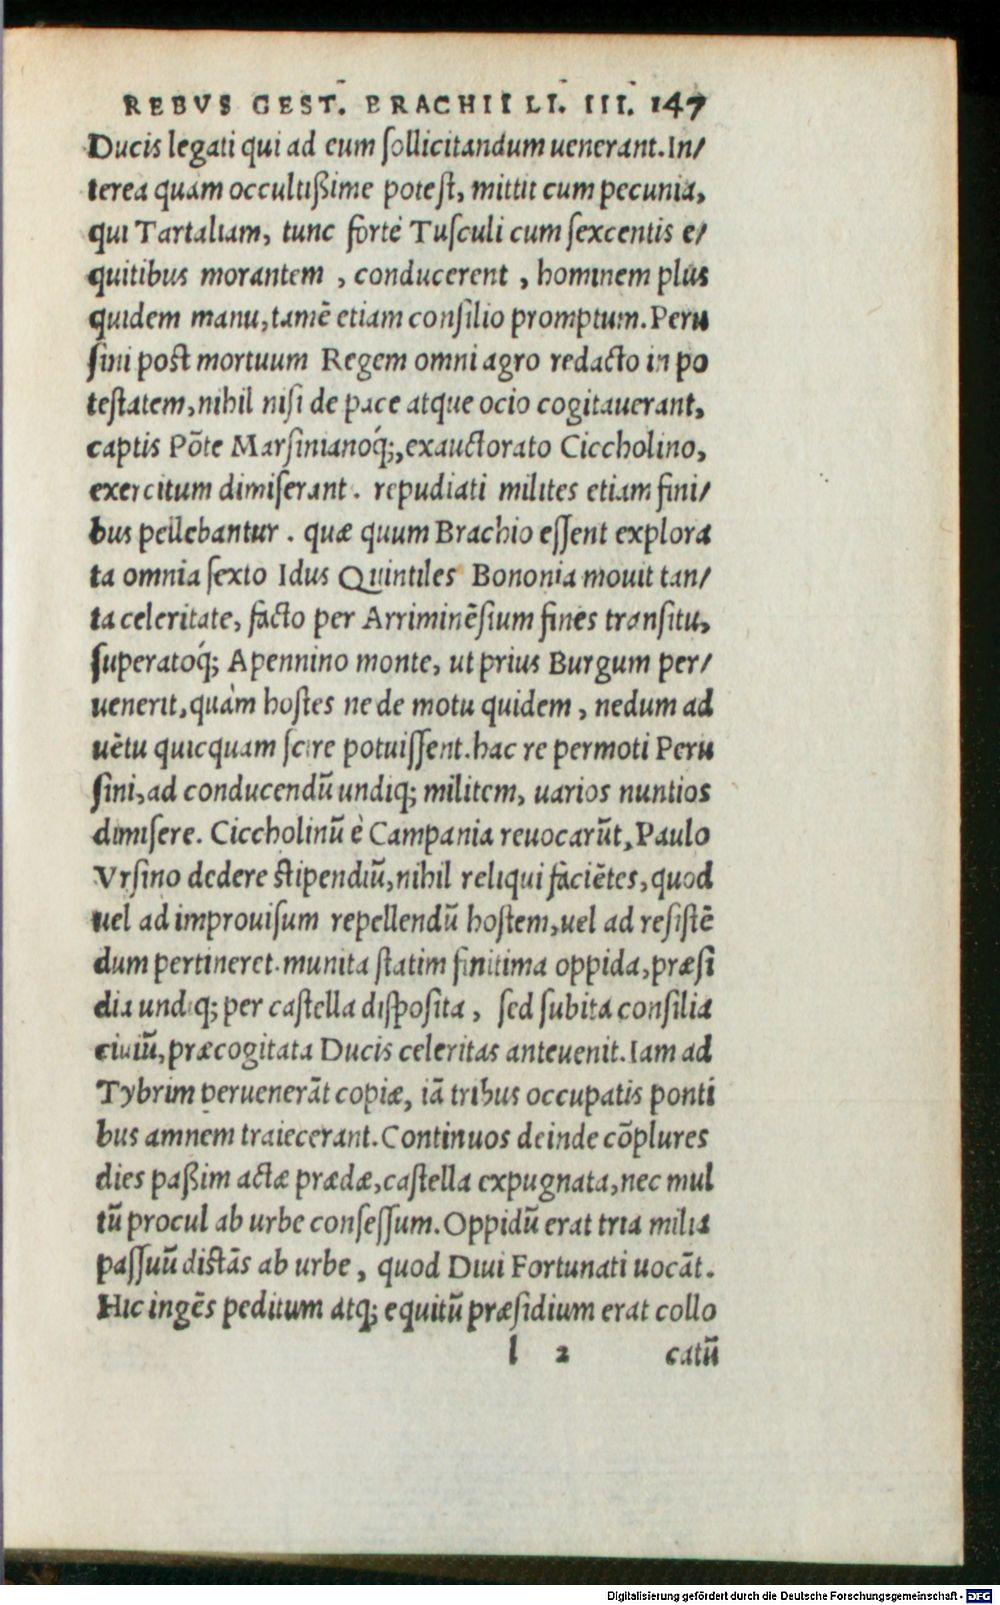 REBVS GEST. BRACHII LI. III. 147
Ducis legati qui ad eum ſollicitandum uenerant. In/
terea quàm occultißime poteſt, mittit cum pecunia,
qui Tartaliam, tunc fortè Tuſculi cum ſexcentis e/
quitibus morantem , conducerent , hominem plus
quidem manu, tamē etiam conſilio promptum. Peru
ſini poſt mortuum Regem omni agro redacto in po
teſtatem, nihil niſi de pace atque ocio cogitauerant,
captis Pōte Marſinianoq́;, exauctorato Ciccholino,
exercitum dimiſerant. repudiati milites etiam fini/
bus pellebantur . quæ quum Brachio eſſent explora
ta omnia ſexto Idus Quintiles Bononia mouit tan/
ta celeritate, facto per Arriminēſium fines tranſitu,
ſuperatoq́; Apennino monte, ut prius Burgum per/
uenerit, quàm hoſtes ne de motu quidem , nedum ad
uētu quicquam ſcire potuiſſent. hac re permoti Peru
ſini, ad conducendū undiq; militem, uarios nuntios
dimiſere. Ciccholinū è Campania reuocarūt, Paulo
Vrſino dedere ſtipendiū, nihil reliqui faciētes, quod
uel ad improuiſum repellendū hoſtem, uel ad reſiſtē
dum pertineret. munita ſtatim finitima oppida, præſi
dia undiq; per caſtella diſpoſita , ſed ſubita conſilia
ciuiū, præcogitata Ducis celeritas anteuenit. Iam ad
Tybrim peruenerāt copiæ, iā tribus occupatis ponti
bus amnem traiecerant. Continuos deinde cōplures
dies paßim actæ prædæ, caſtella expugnata, nec mul
tū procul ab urbe conſeſſum. Oppidū erat tria milia
paſſuū diſtās ab urbe , quod Diui Fortunati uocāt.
Hic ingēs peditum atq; equitū præſidium erat collo
l 2 catū
Digitalisierung gefördert durch die Deutsche Forschungsgemeinschaft - DFG